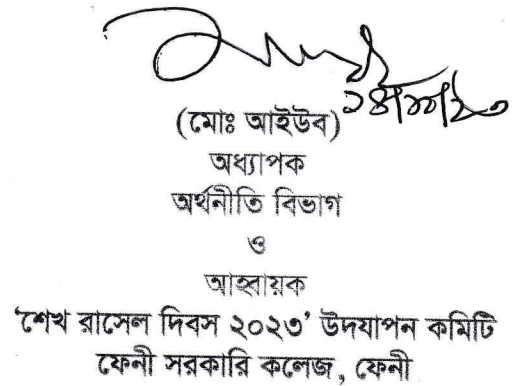 (মোঃ আইউব)
অধ্যাপক
অর্থনীতি বিভাগ
ও
আহ্বায়ক
‘শেখ রাসেল দিবস ২০২৩’ উদযাপন কমিটি
ফেনী সরকারি কলেজ, ফেনী